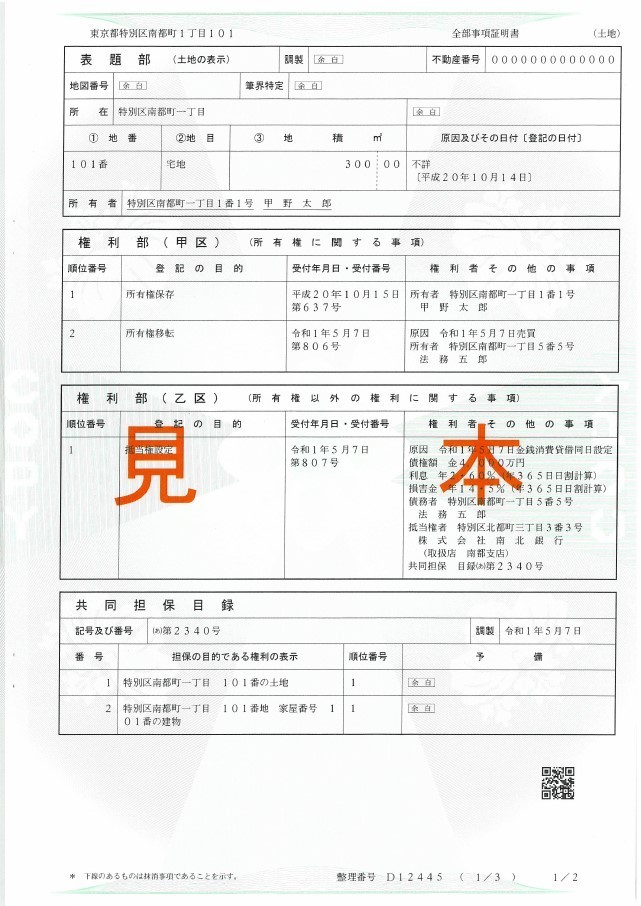 東京都特別区南都町1丁目101 全部事項証明書 (土地)
表題部 (土地の表示) 調製 余白 不動産番号 0000000000000
地図番号 余白 筆界特定 余白
所在 特別区南都町一丁目 余白
①地番 ②地目 ③地積㎡ 原因及びその日付〔登記の日付〕
101番 宅地 300 00 不詳
〔平成20年10月14日〕
所有者 特別区南都町一丁目1番1号 甲野太郎
権利部(甲区) (所有権に関する事項)
順位番号 登記の目的 受付年月日・受付番号 権利者その他の事項
1 所有権保存 平成20年10月15日 所有者 特別区南都町一丁目1番1号
第637号 甲野太郎
2 所有権移転 令和1年5月7日 原因 令和1年5月7日売買
第806号 所有者 特別区南都町一丁目5番5号
法務五郎
権利部(乙区) (所有権以外の権利に関する事項)
順位番号 登記の目的 受付年月日・受付番号 権利者その他の事項
1 抵当権設定 令和1年5月7日 原因 令和1年5月7日金銭消費貸借同日設定
第807号 債権額 金4,000万円
利息 年2・60%(年365日日割計算)
損害金 年14・5%(年365日日割計算)
債務者 特別区南都町一丁目5番5号
法務五郎
抵当権者 特別区北都町三丁目3番3号
株式会社南北銀行
(取扱店 南都支店)
共同担保 目録(あ)第2340号
見本
共同担保目録
記号及び番号 (あ)第2340号 調製 令和1年5月7日
番号 担保の目的である権利の表示 順位番号 予備
1 特別区南都町一丁目 101番の土地 1 余白
2 特別区南都町一丁目 101番地 家屋番号 1 1 余白
01番の建物
* 下線のあるものは抹消事項であることを示す。 整理番号 D12445 (1/3) 1/2